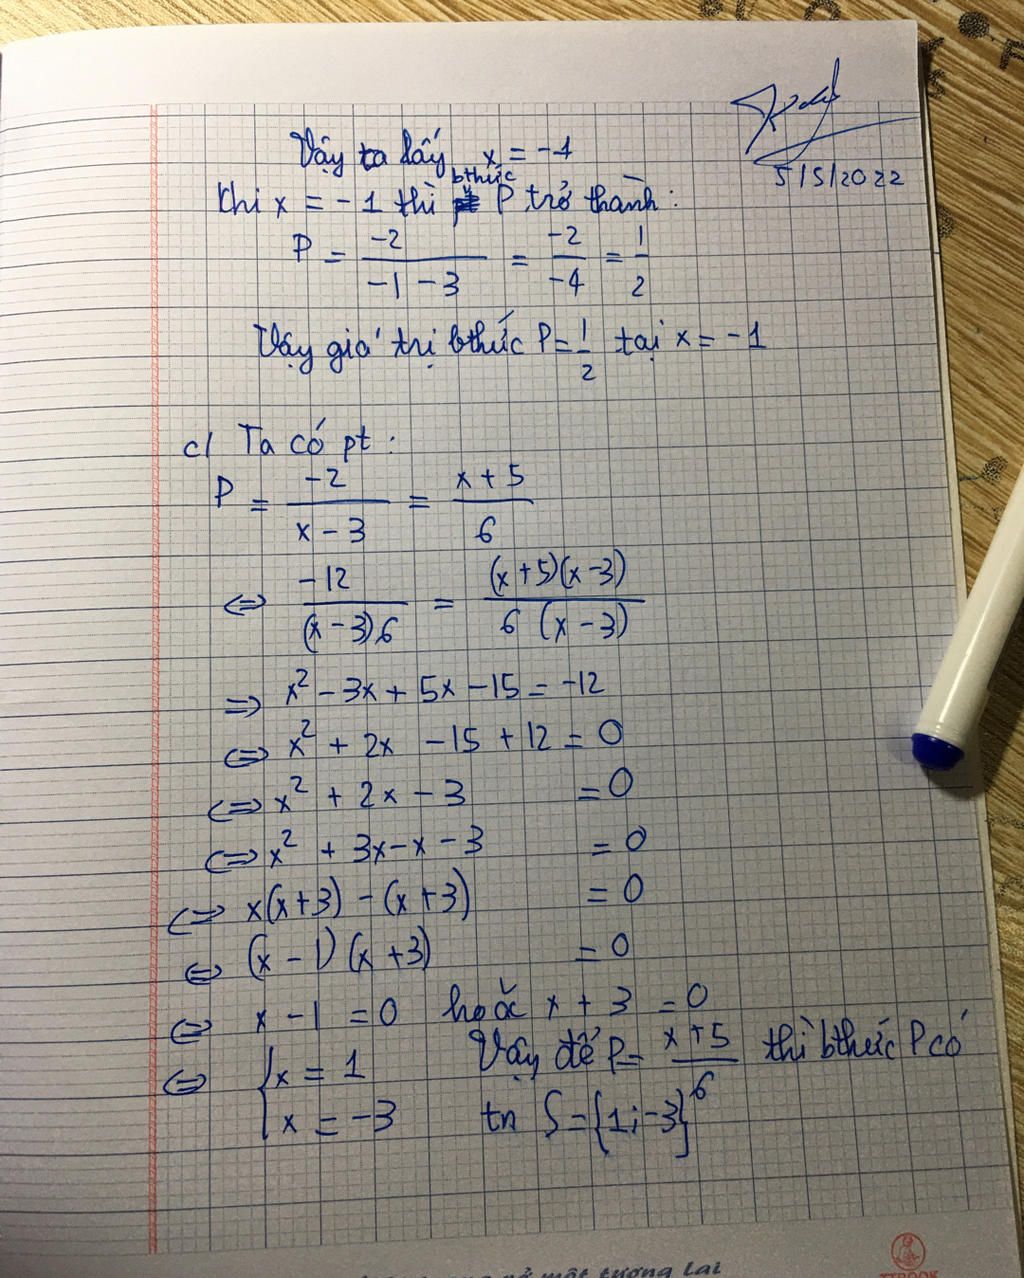 5/5/2022
Vậy ta lấy x = -1
bthức
Khi x = -1 thì P trở thành:
P = -2/(-1 - 3) = -2/-4 = 1/2
Vậy giá trị bthức P = 1/2 tại x = -1
c/ Ta có pt:
P = -2/(x - 3) = (x + 5)/6
⇔ -12/((x - 3)6) = (x + 5)(x - 3)/(6 (x - 3))
⇒ x² - 3x + 5x - 15 = -12
⇔ x² + 2x - 15 + 12 = 0
⇔ x² + 2x - 3 = 0
⇔ x² + 3x - x - 3 = 0
⇔ x(x + 3) - (x + 3) = 0
⇔ (x - 1)(x + 3) = 0
⇔ x - 1 = 0 hoặc x + 3 = 0
⇔ { x = 1
x = -3
Vậy để P = (x + 5)/6 thì bthức P có
tn S = {1; -3}
một tương lai